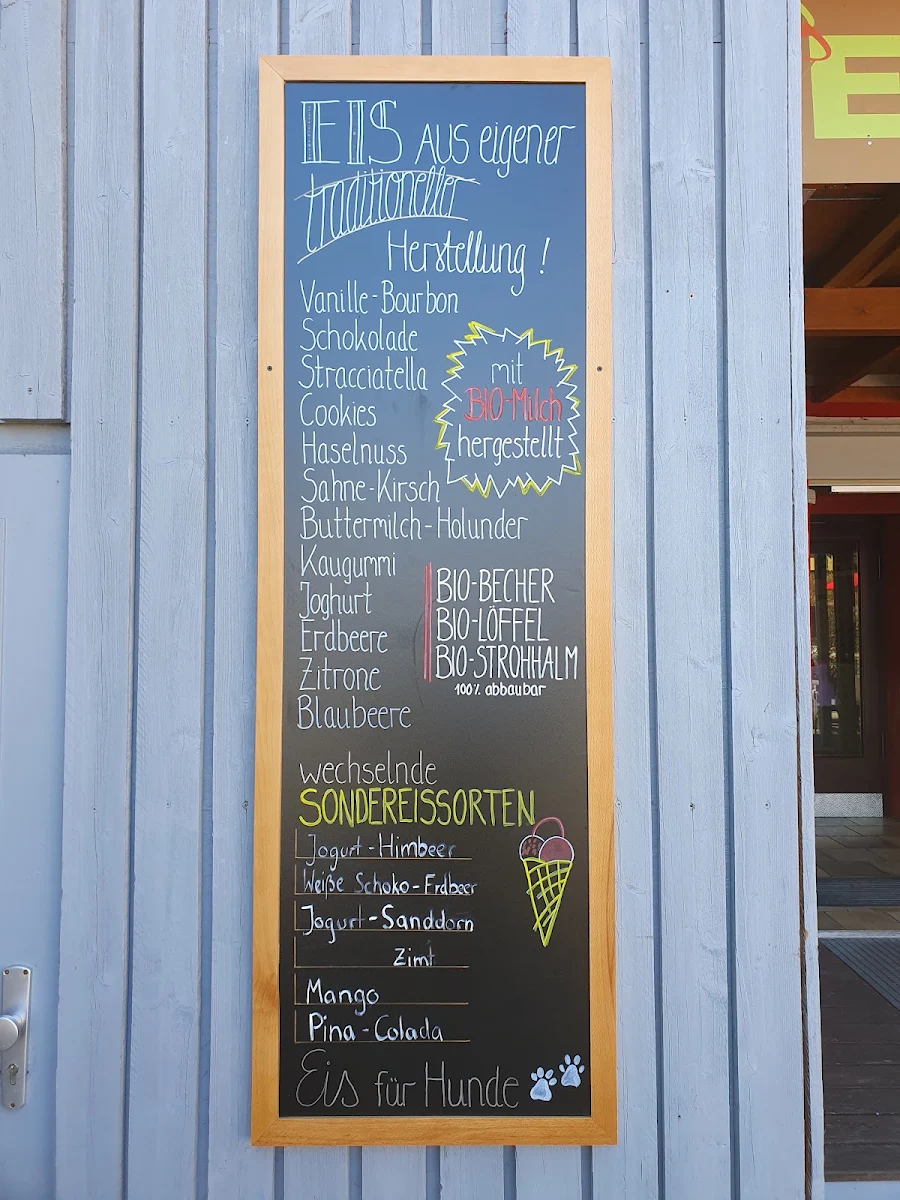 EIS AUS eigener
traditioneller
Herstellung !
Vanille-Bourbon
Schokolade
Stracciatella
Cookies
Haselnuss
Sahne-Kirsch
Buttermilch-Holunder
Kaugummi
Joghurt
Erdbeere
Zitrone
Blaubeere
mit
BIO-Milch
hergestellt
BIO-BECHER
BIO-LÖFFEL
BIO-STROHHALM
100% abbaubar
wechselnde
SONDEREISSORTEN
Jogurt-Himbeer
Weiße Schoko-Erdbeer
Jogurt-Sanddorn
Zimt
Mango
Pina-Colada
Eis für Hunde